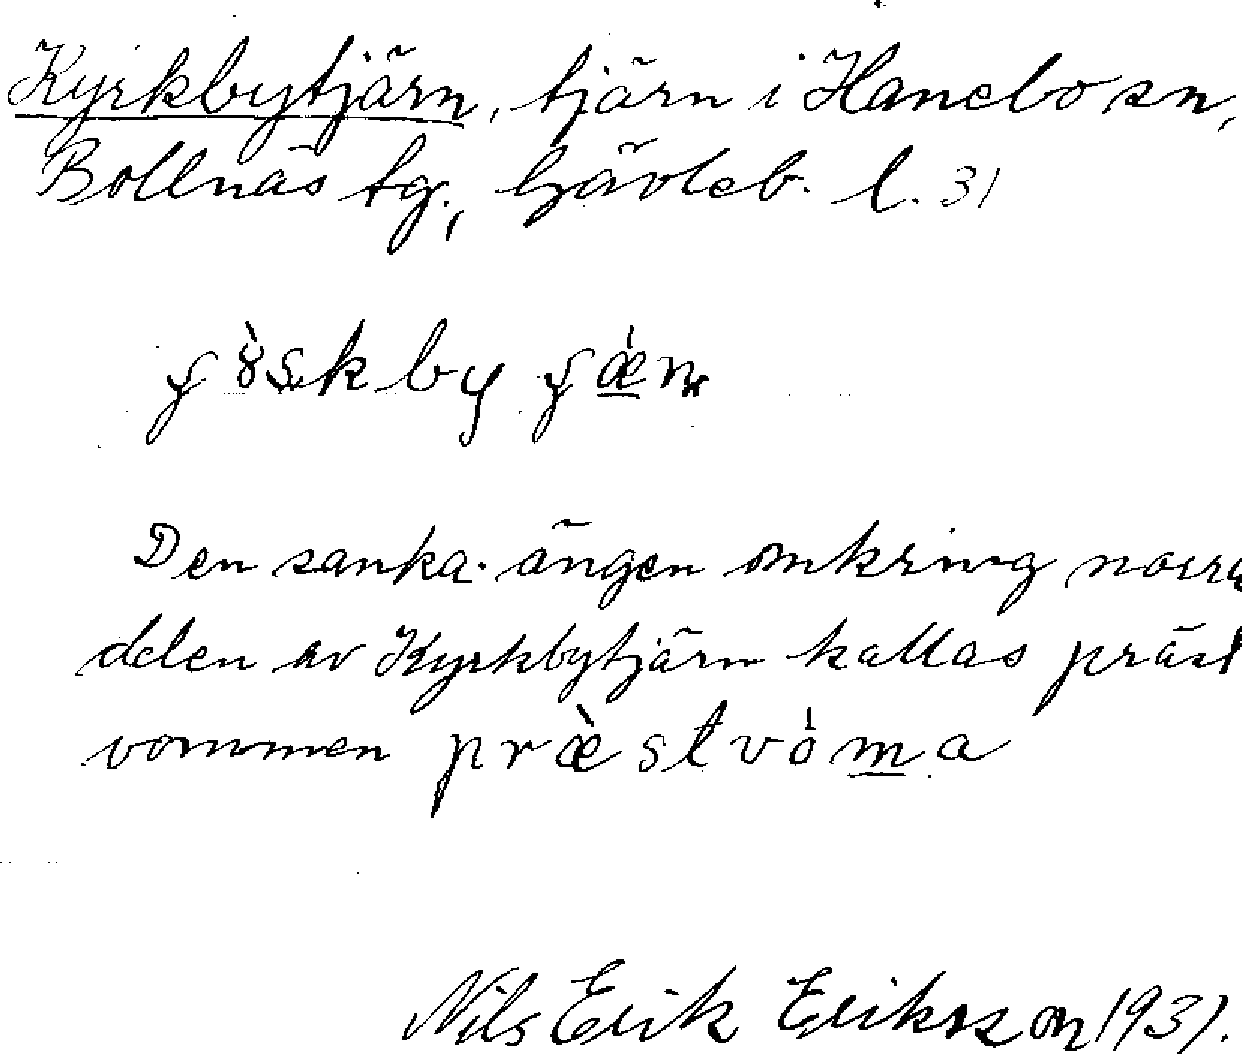 Kyrkbytjärn, tjärn i Hanebo sn,
Bollnäs tg., Gävleb. l. 31
Den sanka ängen omkring norra
delen av Kyrkbytjärn kallas präst
vommen præ̀stvóma
Nils Erik Eriksson 1931.